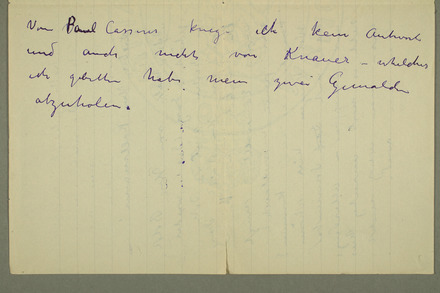 Von Paul Cassirer krieg ich kein Antwort
und auch nichts von Knauer – welches
ich gebitten habe mein zwei Gemälden
abzuholen.